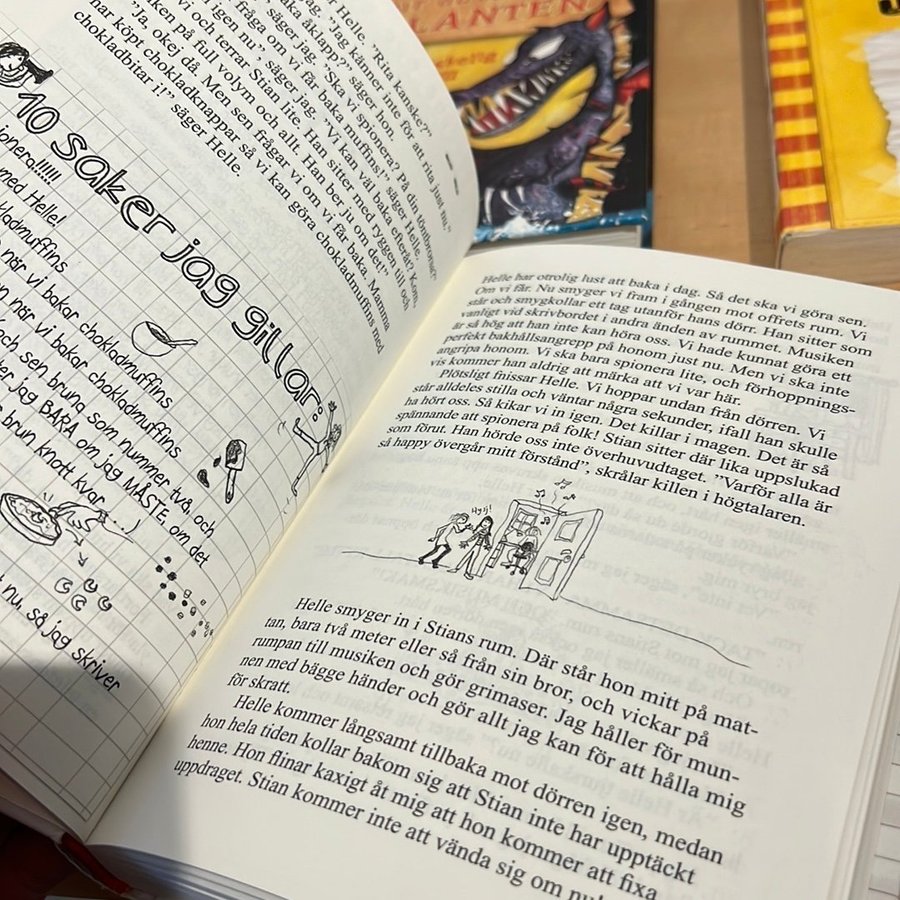 r Helle. "Rita kanske?"
"Jag känner inte för att rita just nu."
"Ska vi spionera? På din töntbrorsa?"
baka efteråt? Kom,
igen nu" säger jag. "Vi kan väl baka muffins!" säger Helle.
och terrar Stian lite. Han sitter med ryggen till och
en på full volym och allt. Han ber ju om det!"
"Ja, okej då. Men sen frågar vi om vi får baka. Mamma
har köpt chokladknappar, så vi kan göra chokladmuffins med
chokladbitar i!" säger Helle.
10 saker jag gillar:
med Helle!
när vi bakar chokladmuffins
n när vi bakar chokladmuffins
och sen bruna som nummer två, och
jag BARA om jag MÅSTE, om det
brun knott kvar
nu, så jag skriver
LANTEN
Helle har otrolig lust att baka i dag. Så det ska vi göra sen.
Om vi får. Nu smyger vi fram i gången mot offrets rum. Vi
står och smygkollar ett tag utanför hans dörr. Han sitter som
vanligt vid skrivbordet i andra änden av rummet. Musiken
är så hög att han inte kan höra oss. Vi hade kunnat göra ett
perfekt bakhållsangrepp på honom just nu. Men vi ska inte
angripa honom. Vi ska bara spionera lite, och förhoppnings-
vis kommer han aldrig att märka att vi var här.
Plötsligt fnissar Helle. Vi hoppar undan från dörren. Vi
står alldeles stilla och väntar några sekunder, ifall han skulle
ha hört oss. Så kikar vi in igen. Det killar i magen. Det är så
spännande att spionera på folk! Stian sitter där lika uppslukad
som förut. Han hörde oss inte överhuvudtaget. "Varför alla är
så happy övergår mitt förstånd", skrålar killen i högtalaren.
Hyjj!
Helle smyger in i Stians rum. Där står hon mitt på mat-
tan, bara två meter eller så från sin bror, och vickar på
rumpan till musiken och gör grimaser. Jag håller för mun-
nen med bägge händer och gör allt jag kan för att hålla mig
för skratt.
Helle kommer långsamt tillbaka mot dörren igen, medan
hon hela tiden kollar bakom sig att Stian inte har upptäckt
henne. Hon flinar kaxigt åt mig att hon kommer att fixa
uppdraget. Stian kommer inte att vända sig om nu